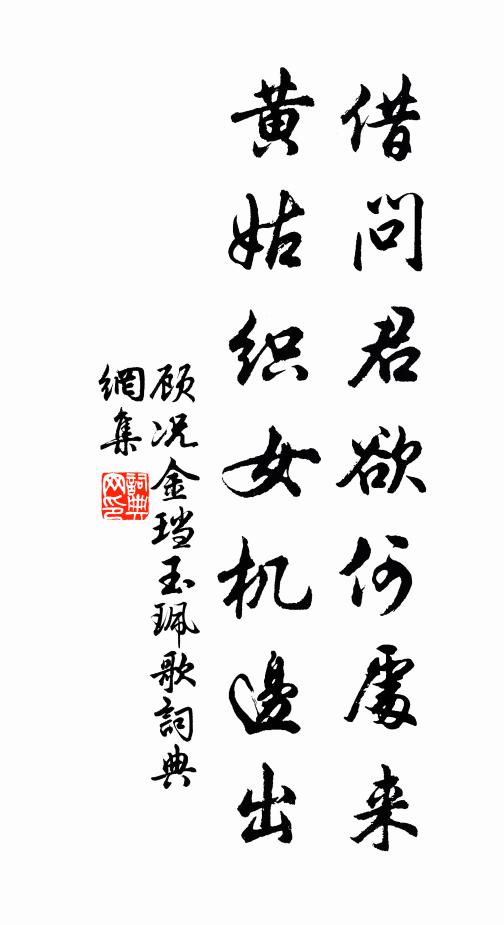 借问君欲何處来
黄姑织女机邊出
顾况金珰玉珮歌詞典
網集
詞典
网印